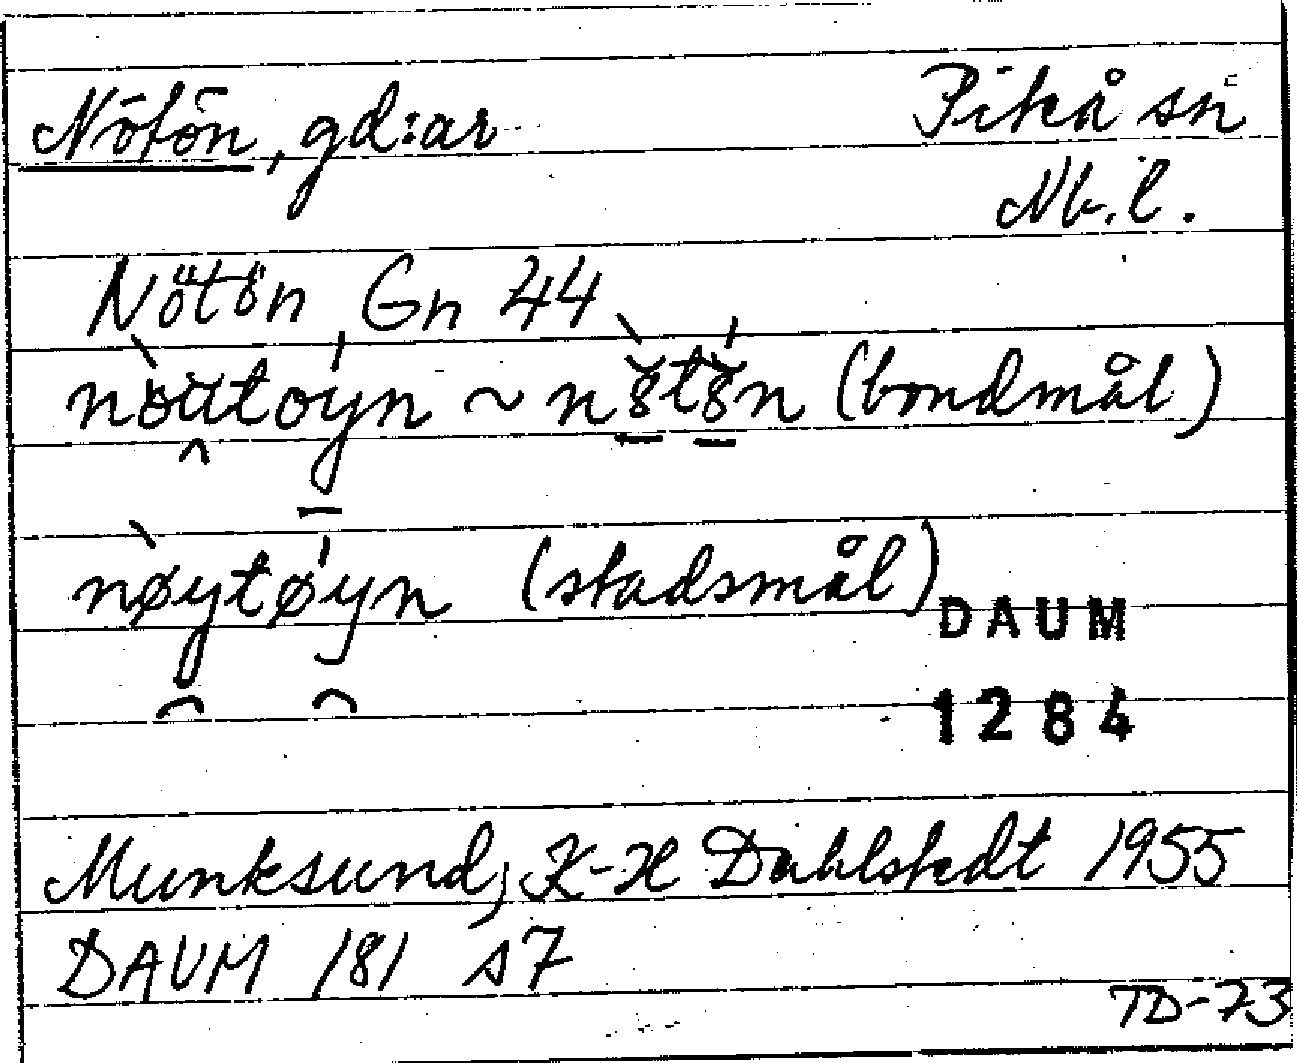 Nötön, gd:ar Piteå sn
Nb.l.
Nötön Gn 44
nòutóyn ~ nö̀tö́n (bondmål)
nø̀ytǿyn (stadsmål)
DAUM
1284
Munksund, K-H Dahlstedt 1955
DAUM 181 s7
TD-73